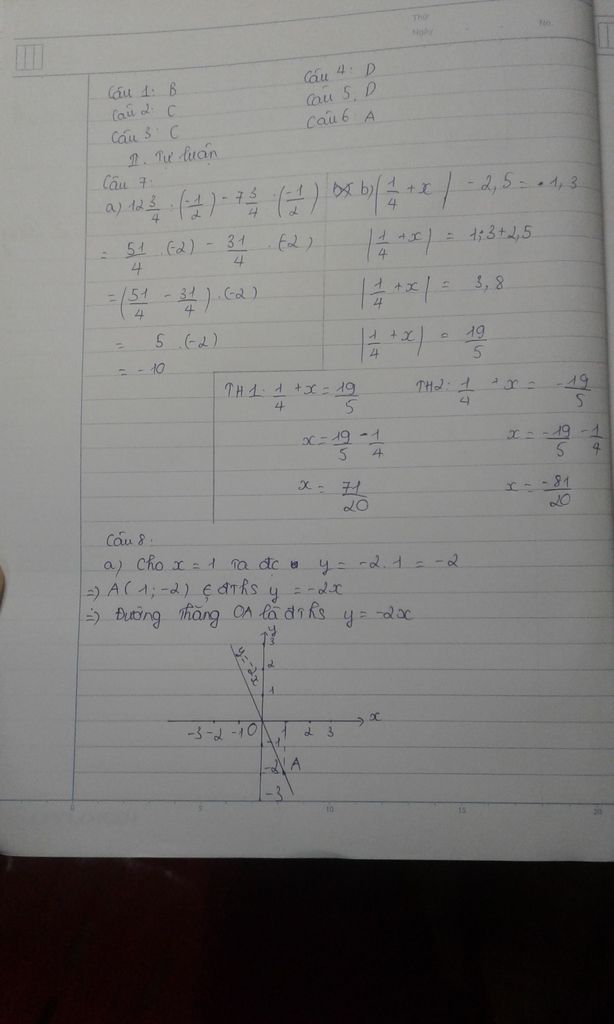 Thứ
Ngày
No.
Câu 1: B
Câu 2: C
Câu 3: C
Câu 4: D
Câu 5. D
Câu 6: A
II. Tự luận
Câu 7:
a) 12 3/4 : (-1/2) - 7 3/4 : (-1/2)
= 51/4 . (-2) - 31/4 . (-2)
= (51/4 - 31/4) . (-2)
= 5 . (-2)
= -10
b) |1/4 + x| - 2,5 = 1,3
|1/4 + x| = 1,3 + 2,5
|1/4 + x| = 3,8
|1/4 + x| = 19/5
TH1: 1/4 + x = 19/5
x = 19/5 - 1/4
x = 71/20
TH2: 1/4 + x = -19/5
x = -19/5 - 1/4
x = -81/20
Câu 8:
a) Cho x = 1 ta đc y = -2.1 = -2
=> A(1; -2) ∈ đths y = -2x
=> Đường thẳng OA là đths y = -2x
y
3
y=-2x
2
1
-3 -2 -1 O 1 2 3 x
-1
-2 A
-3
0 5 10 15 20